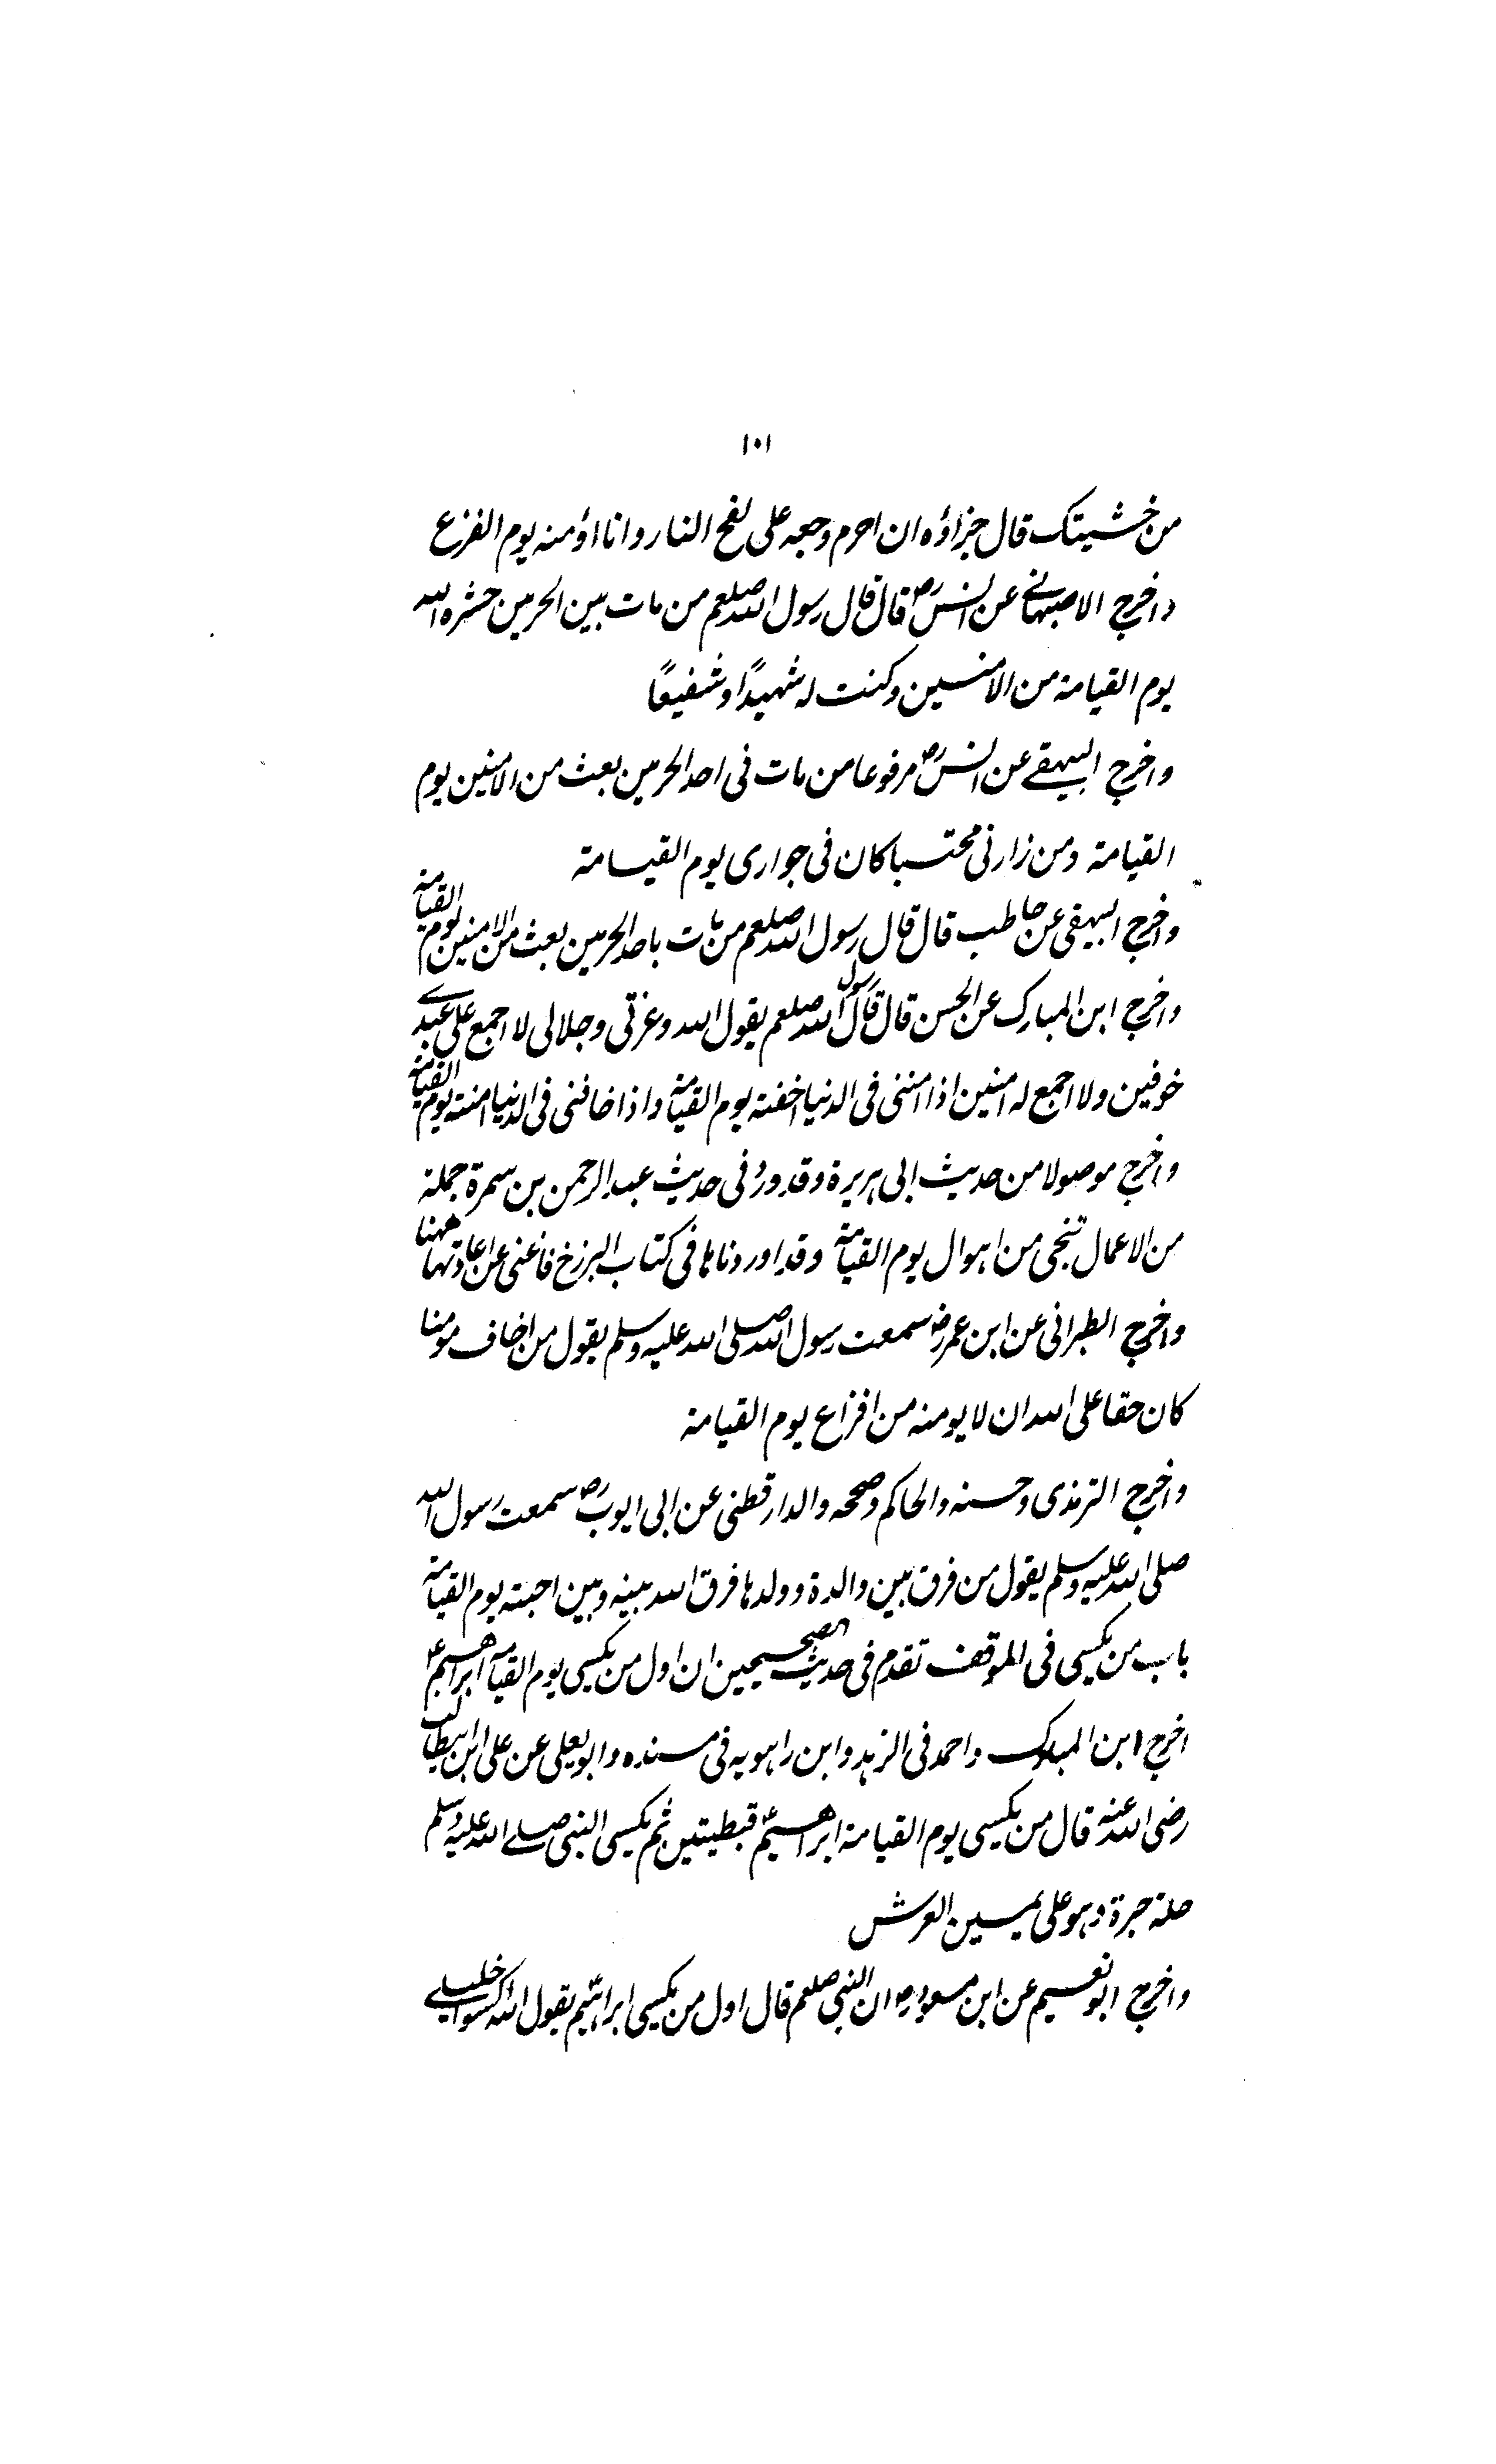 ١٠١
من خشيتك قال جزاؤه ان احرم وجهه على لفح النار وانا اؤمنه يوم الفزع
واخرج الاصبهانى عن انس رض قال قال رسول الله صلعم من مات بين الحرمين حشره الله
يوم القيامة من الآمنين وكنت له شهيدًا وشفيعًا
واخرج البيهقى عن انس رض مرفوعا من مات فى احد الحرمين بعث من الآمنين يوم
القيامة ومن زارنى محتسبا كان فى جوارى يوم القيامة
واخرج البيهقى عن حاطب قال قال رسول الله صلعم من مات باحد الحرمين بعث من الامنين يوم القيامة
واخرج ابن المبارك عن الحسن قال قال رسول الله صلعم يقول الله وعزتى وجلالى لا اجمع على عبدى
خوفين ولا اجمع له امنين اذا امننى فى الدنيا اخفته يوم القيامة واذا خافنى فى الدنيا امنته يوم القيامة
واخرج موصولا من حديث ابى هريرة وقد ورد فى حديث عبد الرحمن بن سمرة جملة
من الاعمال تنجى من اهوال يوم القيامة وقد اوردناها فى كتاب البرزخ فاغنى عن اعادتها ههنا
واخرج الطبرانى عن ابن عمر رض سمعت رسول الله صلى الله عليه وسلم يقول من اخاف مومنا
كان حقا على الله ان لا يومنه من افزاع يوم القيامة
واخرج الترمذى وحسنه والحاكم وصححه والدارقطنى عن ابى ايوب رض سمعت رسول الله
صلى الله عليه وسلم يقول من فرق بين والدة وولدها فرق الله بينه وبين احبته يوم القيامة
باب من يكسى فى الموقف تقدم فى حديث الصحيحين ان اول من يكسى يوم القيامة ابراهيم ع
اخرج ابن المبارك واحمد فى الزهد وابن راهويه فى مسنده وابو يعلى عن على ابن ابيطالب
رضى الله عنه قال من يكسى يوم القيامة ابراهيم ع قبطيتين ثم يكسى النبى صلے الله عليه وسلم
حلة حبرة وهو على يمين العرش
واخرج ابو نعيم عن ابن مسعود رض ان النبى صلعم قال اول من يكسى ابراهيم يقول الله اكسوا خليلے